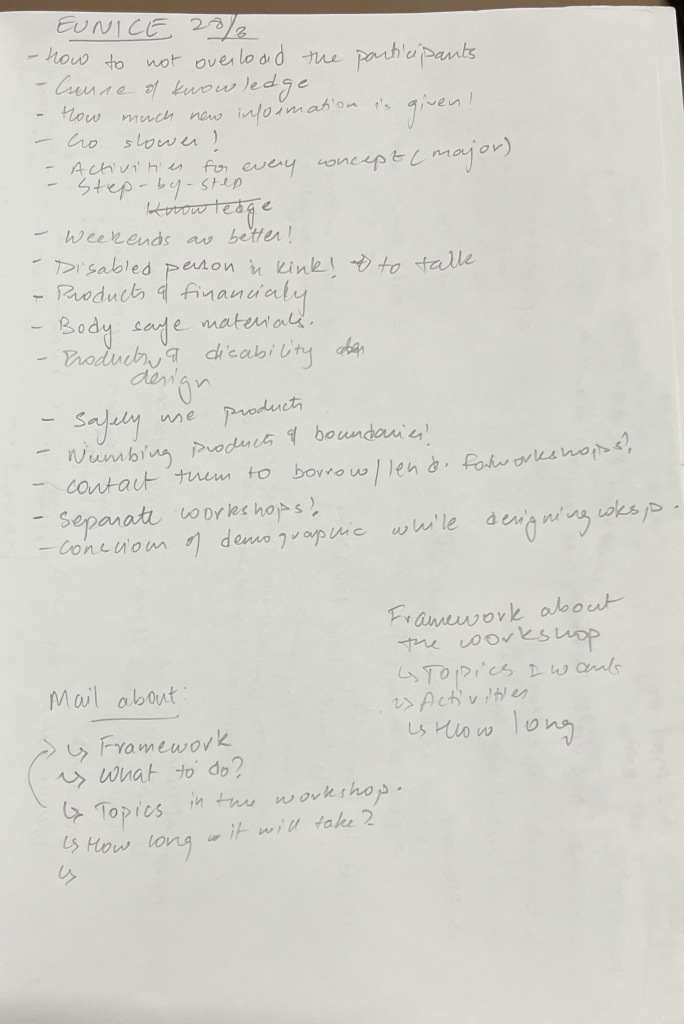 EUNICE 28/3
- How to not overload the participants
- Curse of knowledge
- How much new information is given!
- Go slower!
- Activities for every concept (major)
- Step-by-step
Knowledge
- Weekends are better!
- Disabled person in kink! to talk
- Products & financialy
- Body safe materials.
- Products & disability
design
- Safely use products
- Numbing products & boundaries!
- contact them to borrow/lend. for workshops?
- Separate workshops?
- Concious of demographic while designing wksp.
Framework about
the workshop
↳ Topics I want
↳ Activities
↳ How long
Mail about:
↳ Framework
↳ What to do?
↳ Topics in the workshop.
↳ How long it will take?
↳